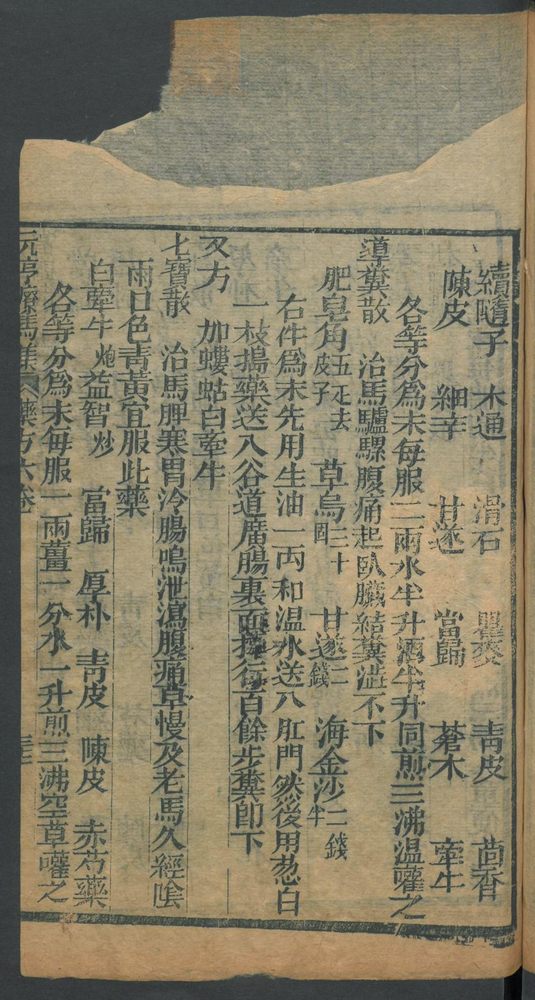 續隨子 木通 滑石 瞿麥 靑皮 茴香
陳皮 細辛 甘遂 當歸 蒼木 牽牛
各等分爲末每服二兩水半升酒半升同煎三沸温嚾之
導糞散 治馬驢騾腹痛起臥臟結糞澁不下
肥皂角五疋去皮子 草烏三十固 甘遂二錢 海金沙二錢半
右件爲末先用生油一丙和温水送入肛門然後用葱白
一枝搗藥送入谷道廣腸裏面 行百餘步糞卽下
又方 加螻蛄白牽牛
七寶散 治馬脾寒胃冷腸鳴泄瀉腹痛草慢及老馬久經陰
雨口色靑黃宜服此藥
白牽牛炮益智炒 當歸 厚朴 靑皮 陳皮 赤芍藥
各等分爲末每服一兩薑一分水一升煎三沸空草嚾之
元亨療馬集 藥方六卷